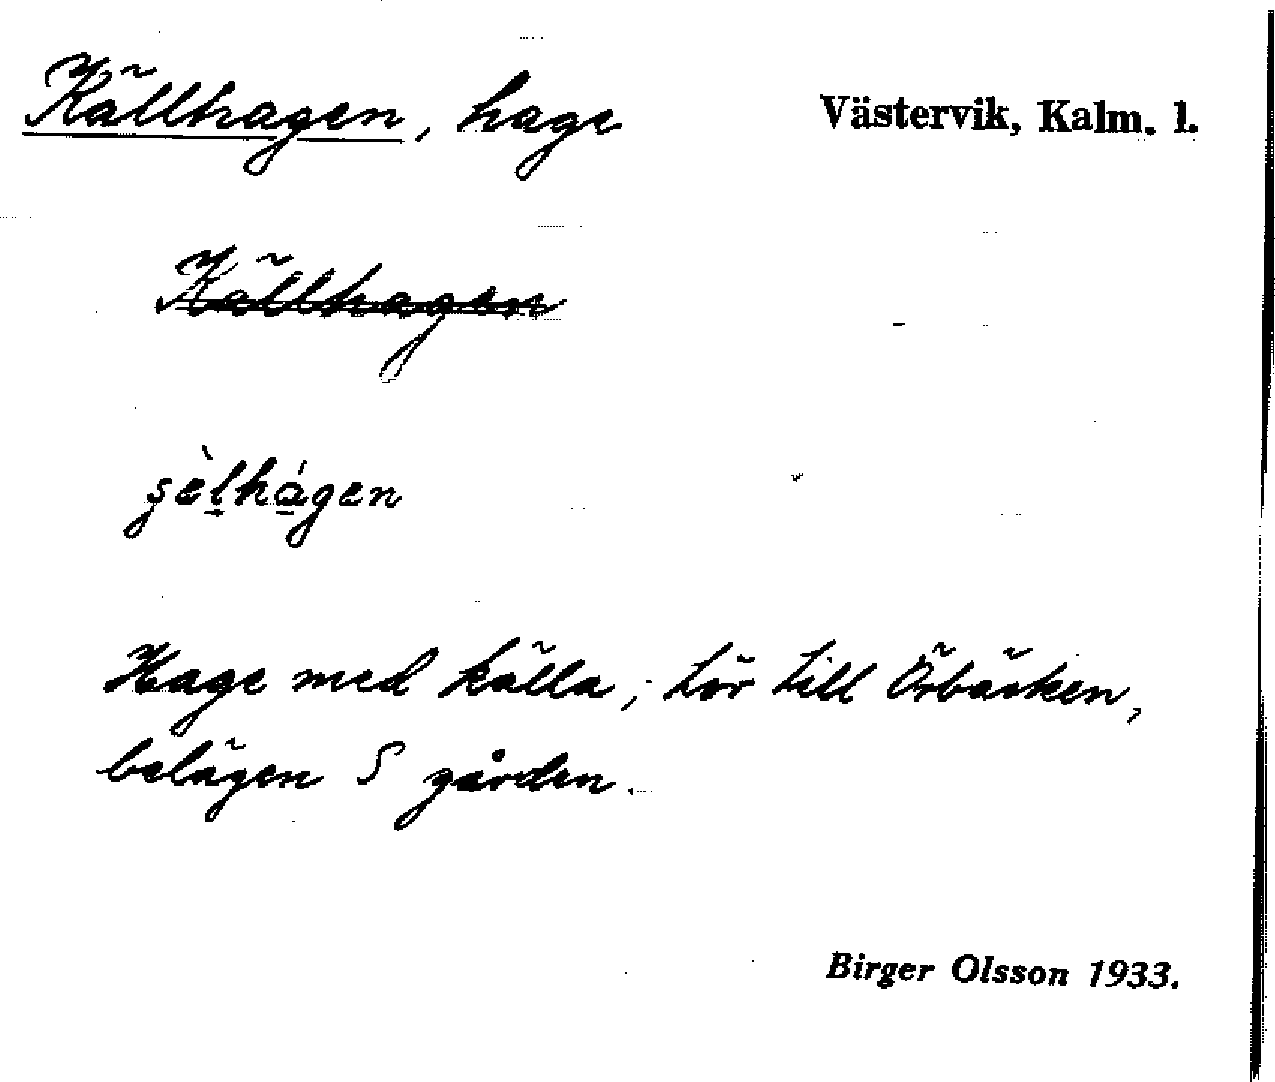 Källhagen, hage
Västervik, Kalm. l.
Källhagen
şèl̲há̲gen
Hage med källa, hör till Örbäcken,
belägen S gården.
Birger Olsson 1933.